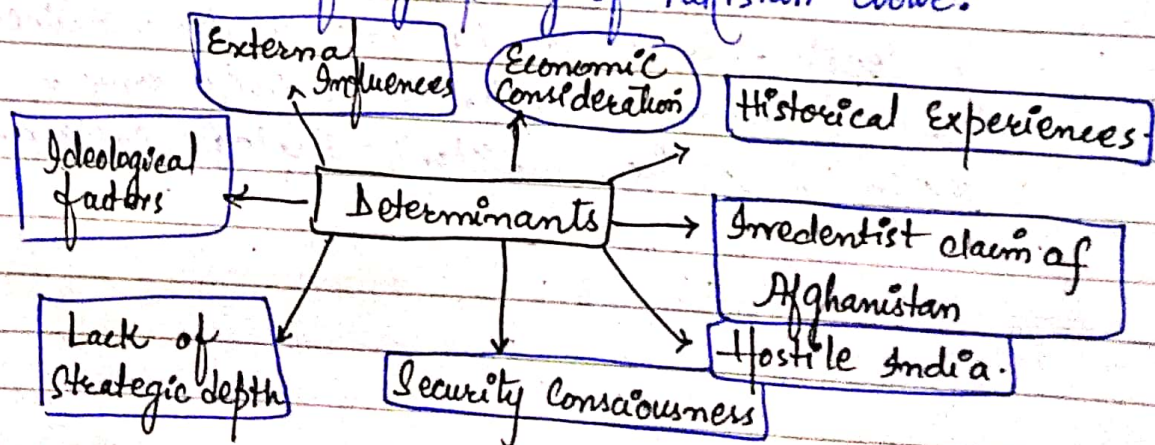 Pakistan
External
Influences
Economic
Consideration
Historical Experiences.
Ideological
factors
Determinants
Irredentist claim of
Afghanistan
Lack of
Strategic depth
Security Consciousness
Hostile India.